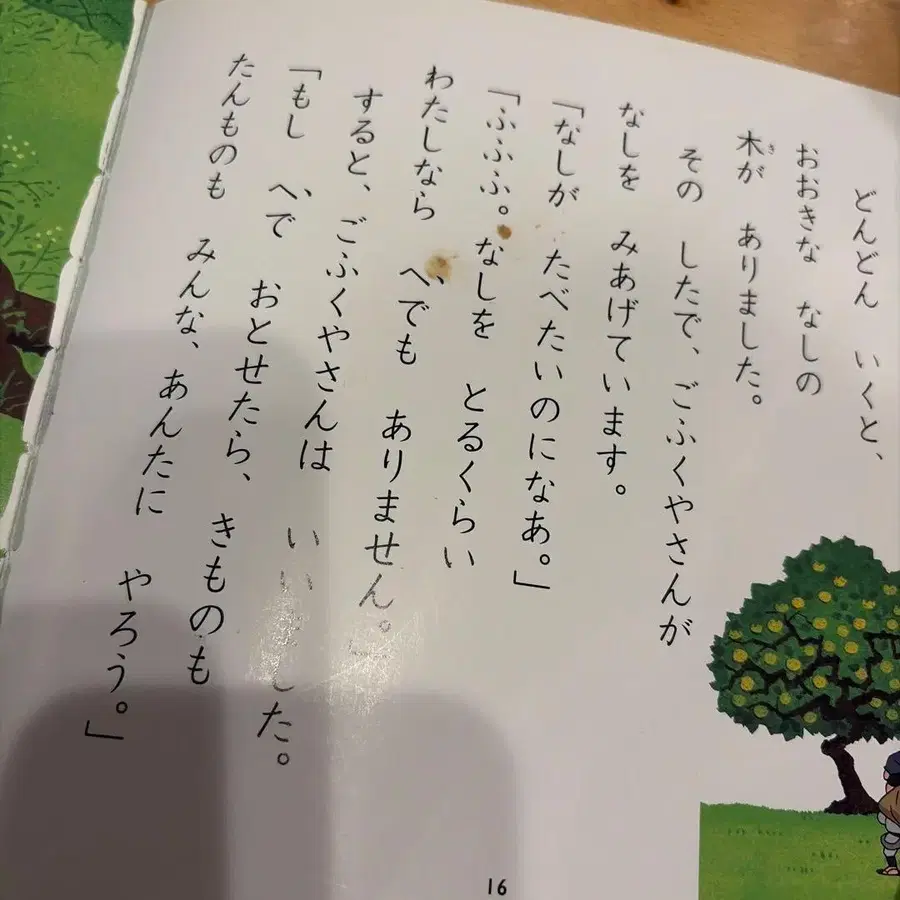 どんどん いくと、
おおきな なしの
木が ありました。
その したで、ごふくやさんが
なしを みあげています。
「なしが たべたいのになあ。」
「ふふふ。なしを とるくらい
わたしなら へでも ありません。」
すると、ごふくやさんは いいました。
「もし へで おとせたら、きものも
たんものも みんな、あんたに やろう。」
16